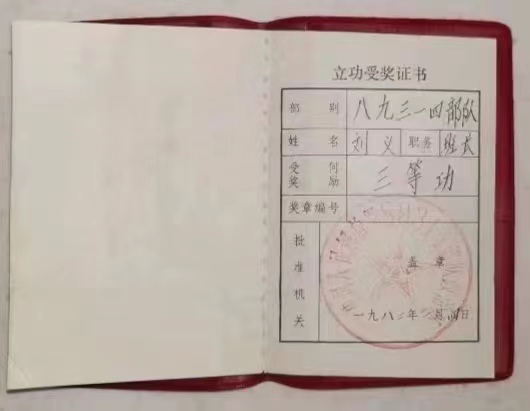 立功受奖证书
部别 八九三一四部队
姓名 刘义 职务 班长
受何奖励 三等功
奖章编号
批准机关
盖章
一九八二年二月四日